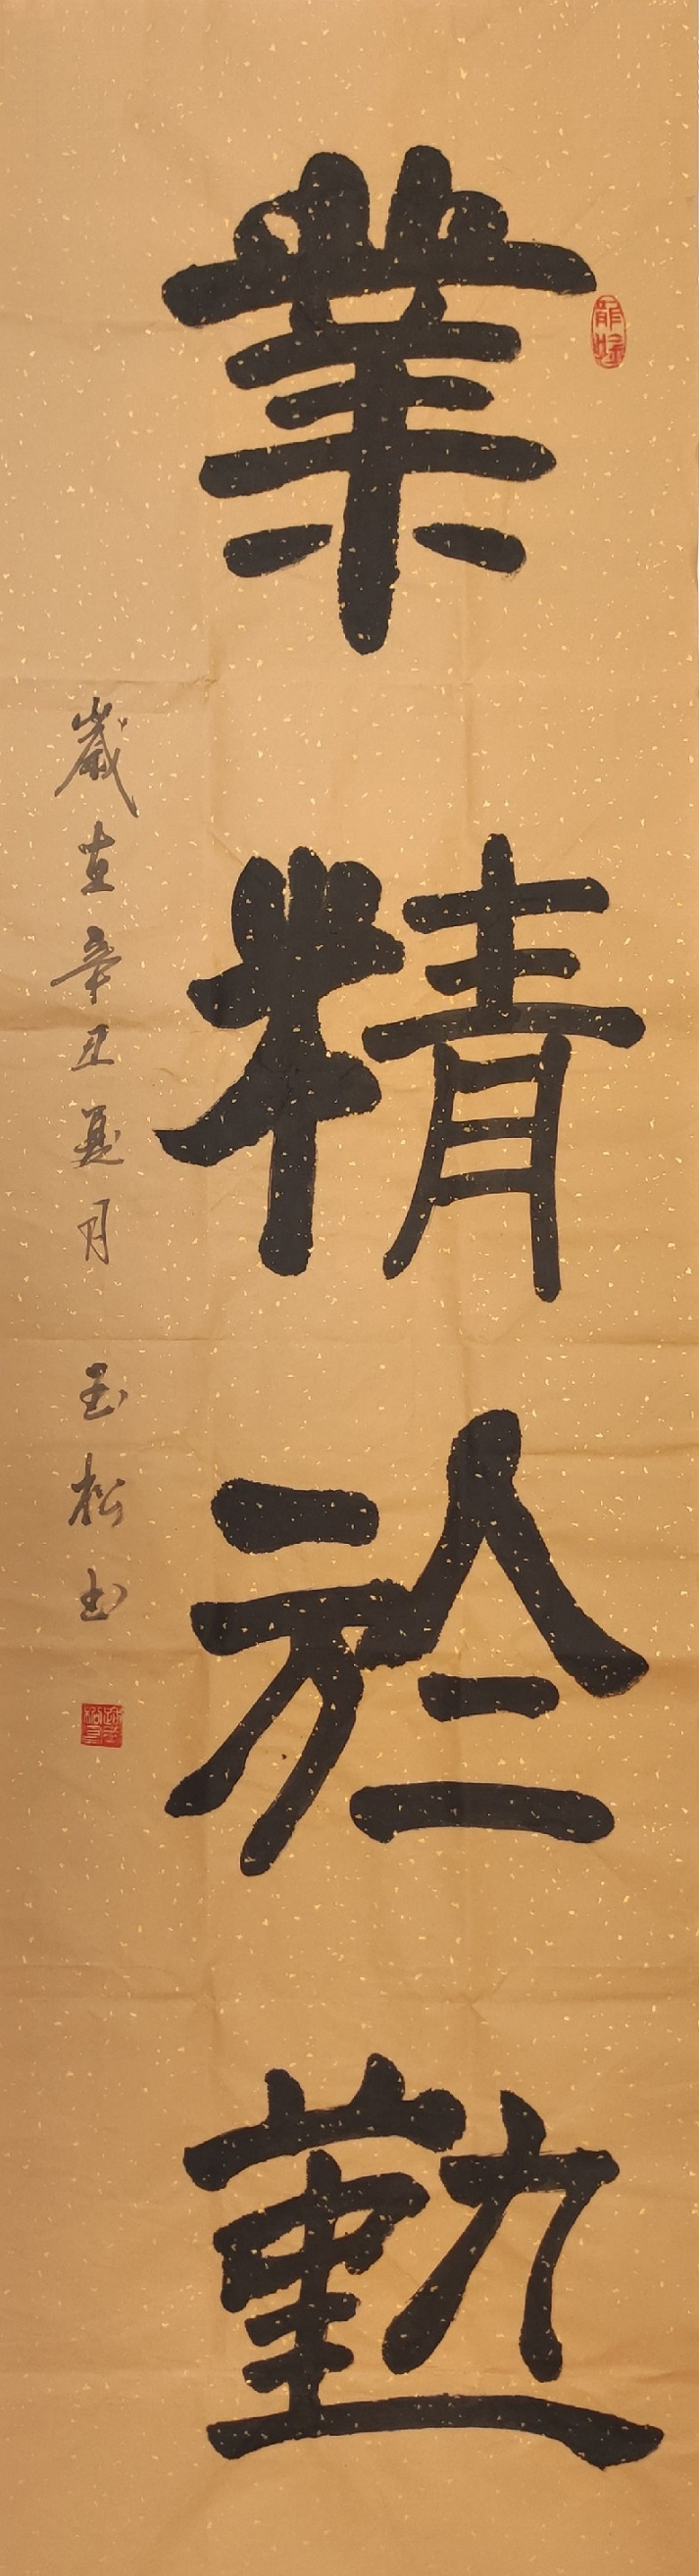 業精於勤
歲在辛丑夏月 玉松书